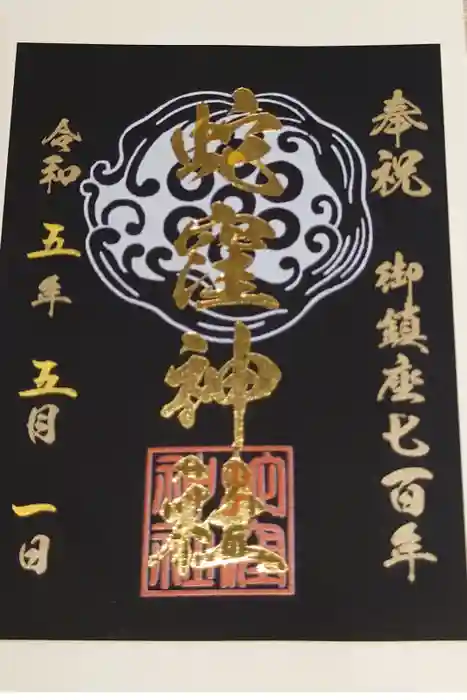 奉祝 御鎮座七百年
蛇窪神社
令和五年五月一日
蛇窪神社